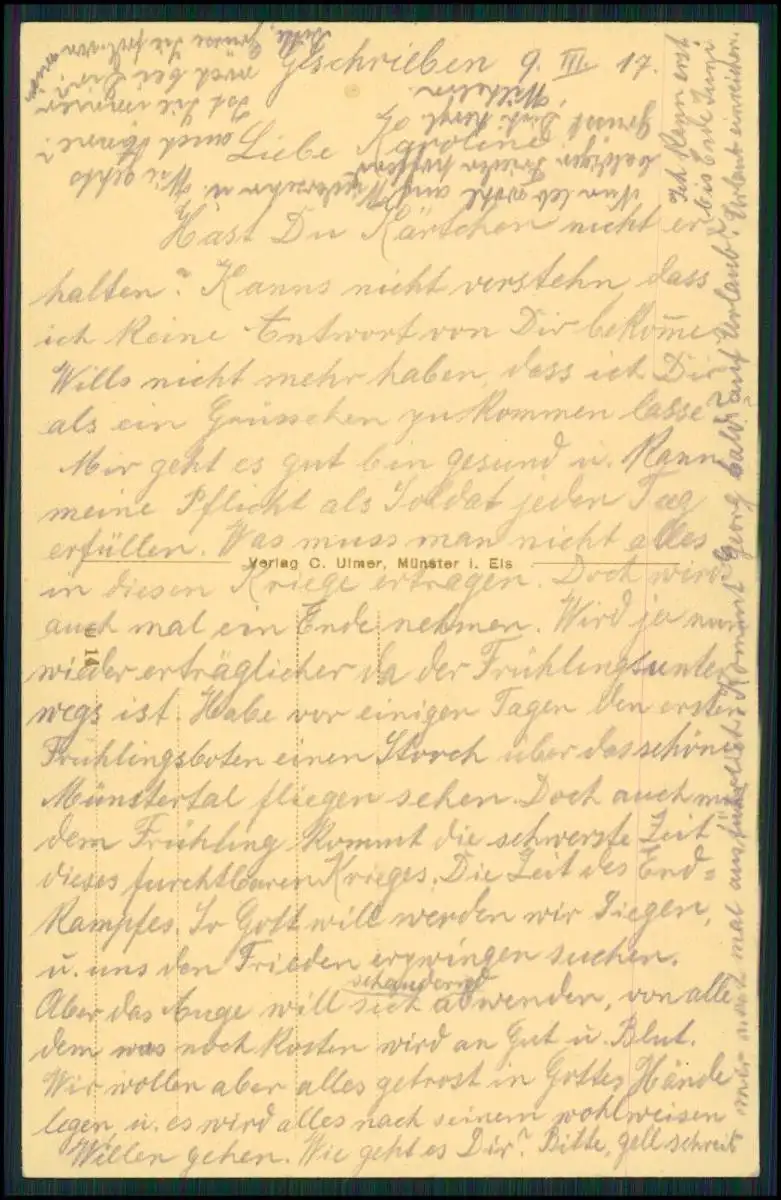 Geschrieben 9. III. 17.
Liebe Karoline
Hast Du Kärtchen nicht er
halten? Kanns nicht verstehn dass
ich keine Entwort von Dir bekom̅e
Wills nicht mehr haben, dass ich Dir
als ein Grüsschen zu kommen lasse?
Mir geht es gut bin gesund u. kann
meine Pflicht als Soldat jeden Tag
erfüllen. Was muss man nicht alles
Verlag C. Ulmer, Münster i. Els
in diesen Kriege ertragen. Doch wirds
auch mal ein Ende nehmen. Wird ja nun
wieder erträglicher da der Frühling unter
wegs ist. Habe vor einigen Tagen den ersten
Frühlingsboten einen Storch über das schöne
Münstertal fliegen sehen. Doch auch mit
dem Frühling kommt die schwerste Zeit
dieses furchtbaren Krieges. Die Zeit des End=
kampfes. So Gott will werden wir Siegen,
u. uns den Frieden erzwingen suchen.
Aber das Auge will sich schaudernd abwenden, von alle
dem was noch kosten wird an Gut u. Blut.
Wir wollen aber alles getrost in Gottes Hände
legen u. es wird alles nach seinem wohlweisen
Willen gehen. Wie geht es Dir? Bitte, gell schreib
mir auch mal ausführlich. Kommt Georg bald auf Urlaub?
Ich kann erst
bis Ende Juni
Urlaub einreichen.
Nun leb wohl auf Wiedersehn u.
baldigen Frieden hoffend
grüsst Dich herzl.
Wilhelm.
Bitte, Grüsse